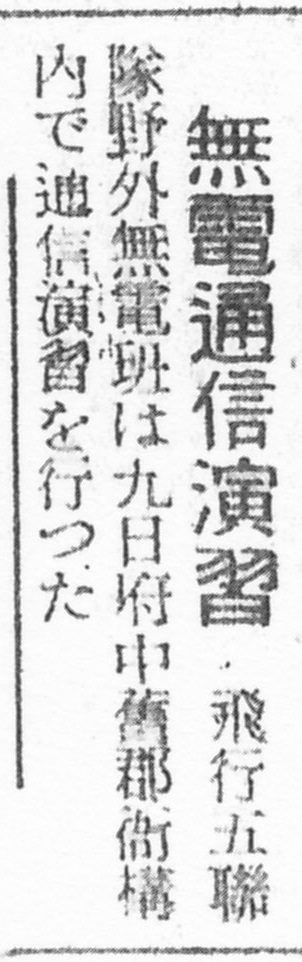 無電通信演習 飛行五聯
隊野外無電班は九日府中舊郡衙構
内で通信演習を行つた